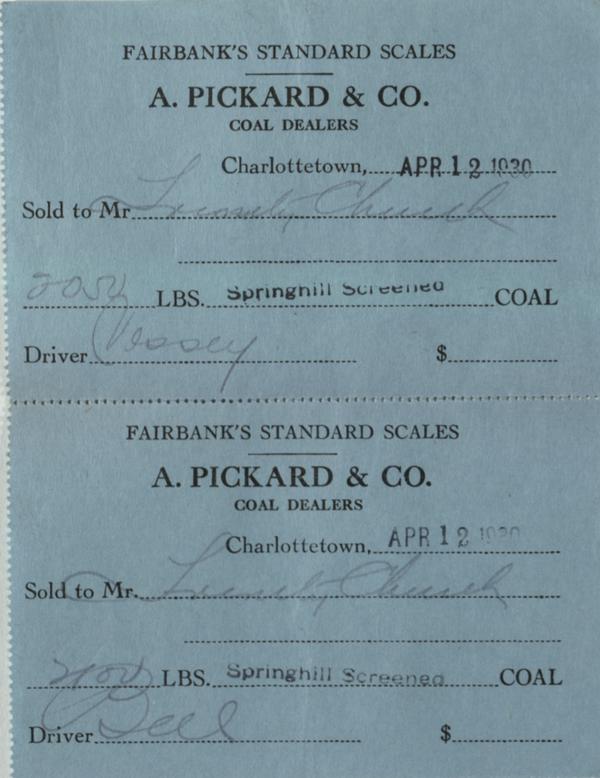 FAIRBANK'S STANDARD SCALES
A. PICKARD & CO.
COAL DEALERS
Charlottetown, APR 12 1930
Sold to Mr. Trinity Church
2050 LBS. Springhill Screened COAL
Driver Vessey $
FAIRBANK'S STANDARD SCALES
A. PICKARD & CO.
COAL DEALERS
Charlottetown, APR 12 1930
Sold to Mr. Trinity Church
LBS. Springhill Screened COAL
Driver Bell $